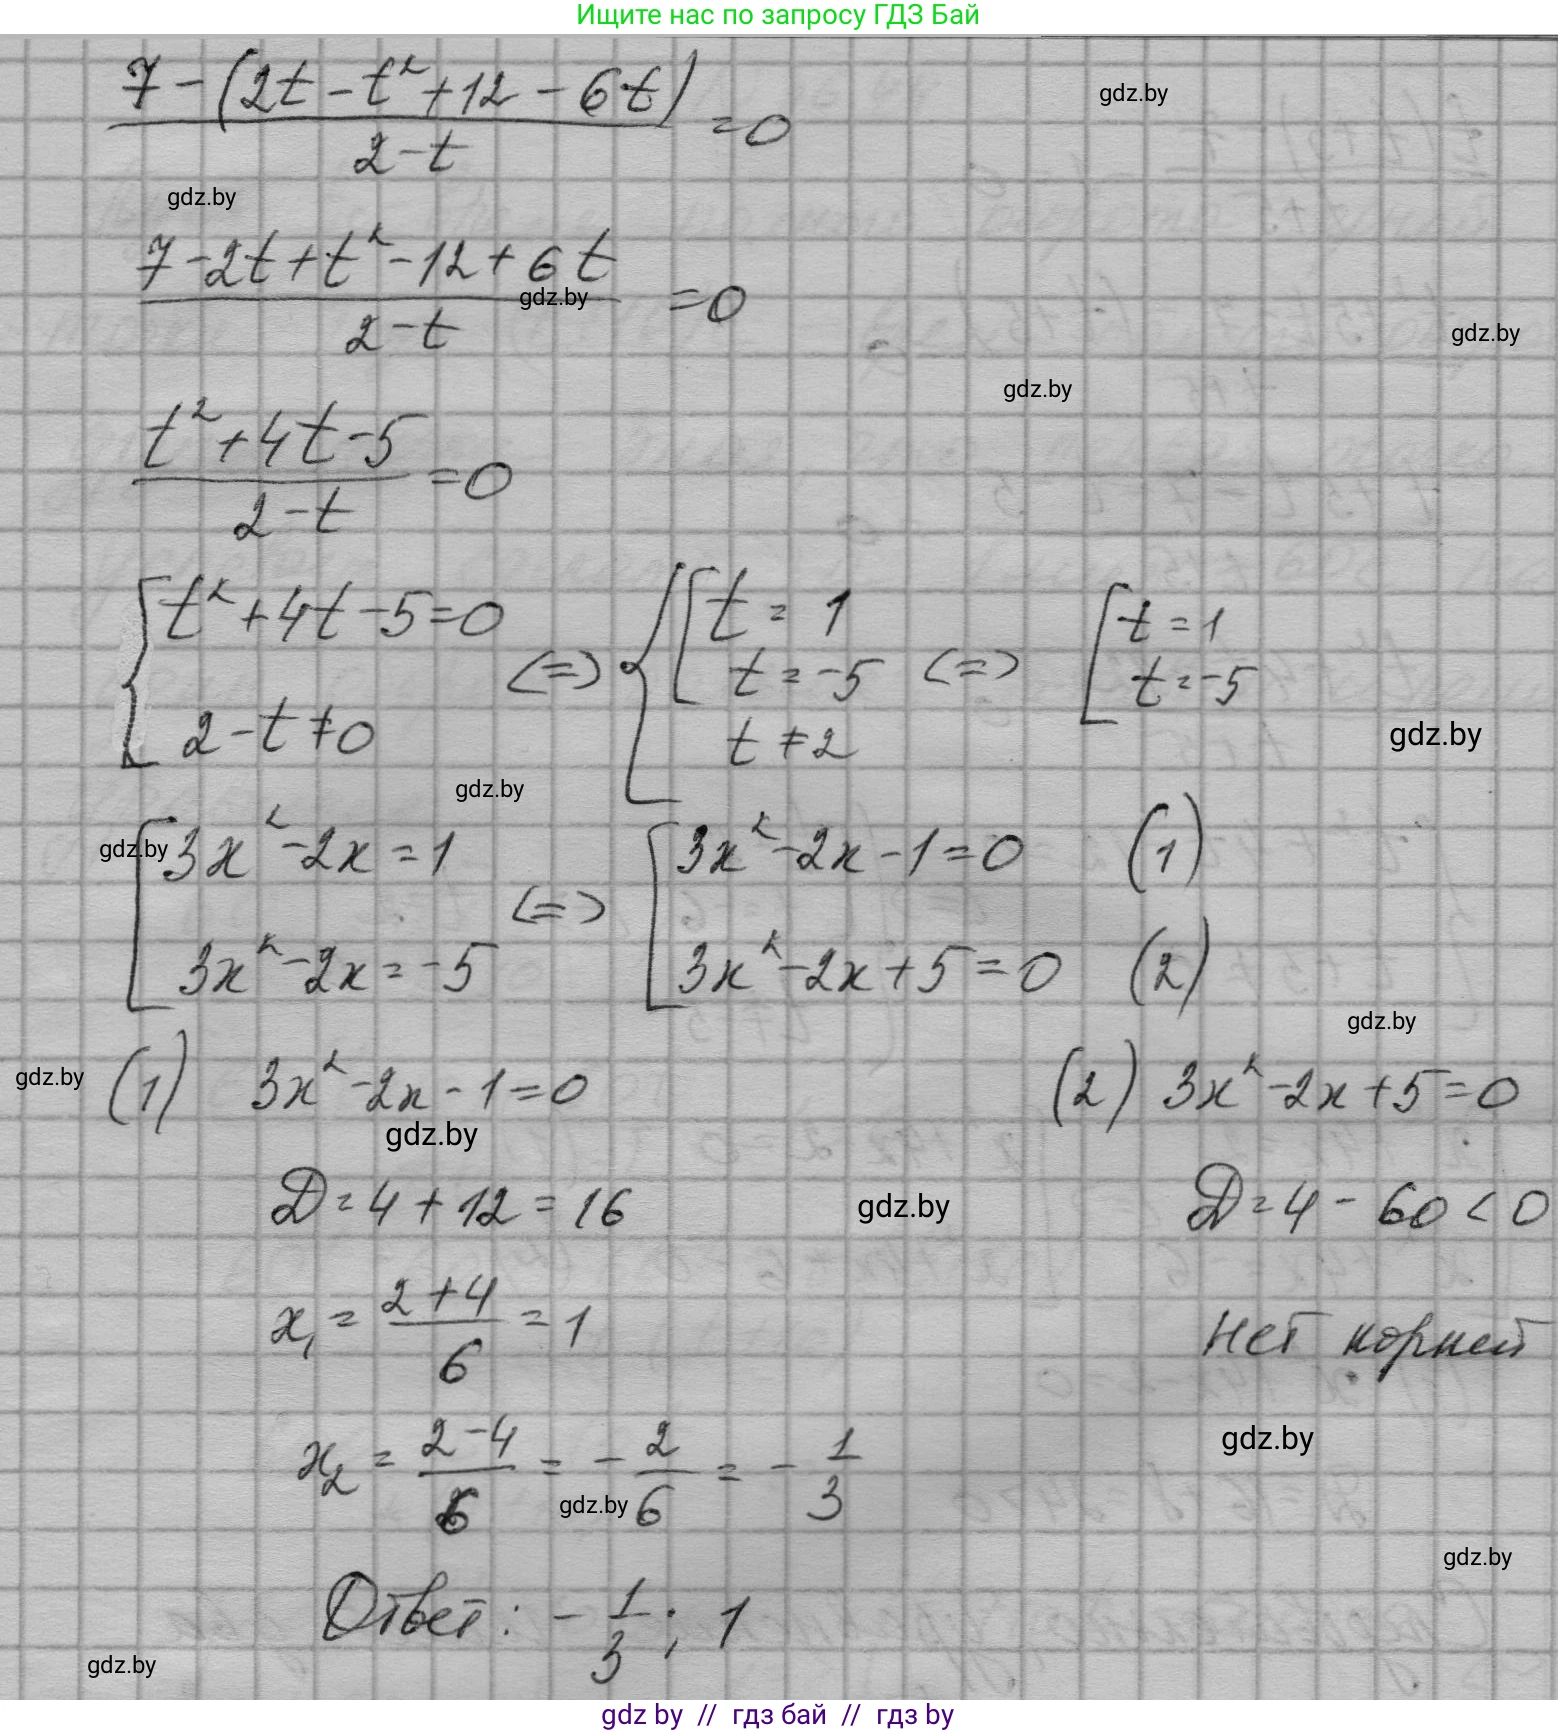 Ищите нас по запросу ГДЗ Бай
7-(2t-t²+12-6t)/2-t =0
gdz.by
gdz.by
7-2t+t²-12+6t/2-t =0
gdz.by
gdz.by
gdz.by
t²+4t-5/2-t =0
{t²+4t-5=0 2-t≠0 <=> {[t=1 t=-5 t≠2 <=> [t=1 t=-5
gdz.by
gdz.by
gdz.by
[3x²-2x=1 <=> [3x²-2x-1=0 (1)
3x²-2x=-5 3x²-2x+5=0 (2)
gdz.by
gdz.by
(1) 3x²-2x-1=0 (2) 3x²-2x+5=0
gdz.by
D=4+12=16 gdz.by D=4-60<0
x₁=2+4/6=1 нет корней
gdz.by
x₂=2-4/6=-2/6=-1/3
gdz.by
gdz.by
Ответ: -1/3; 1
gdz.by
gdz by // гдз бай // gdz by